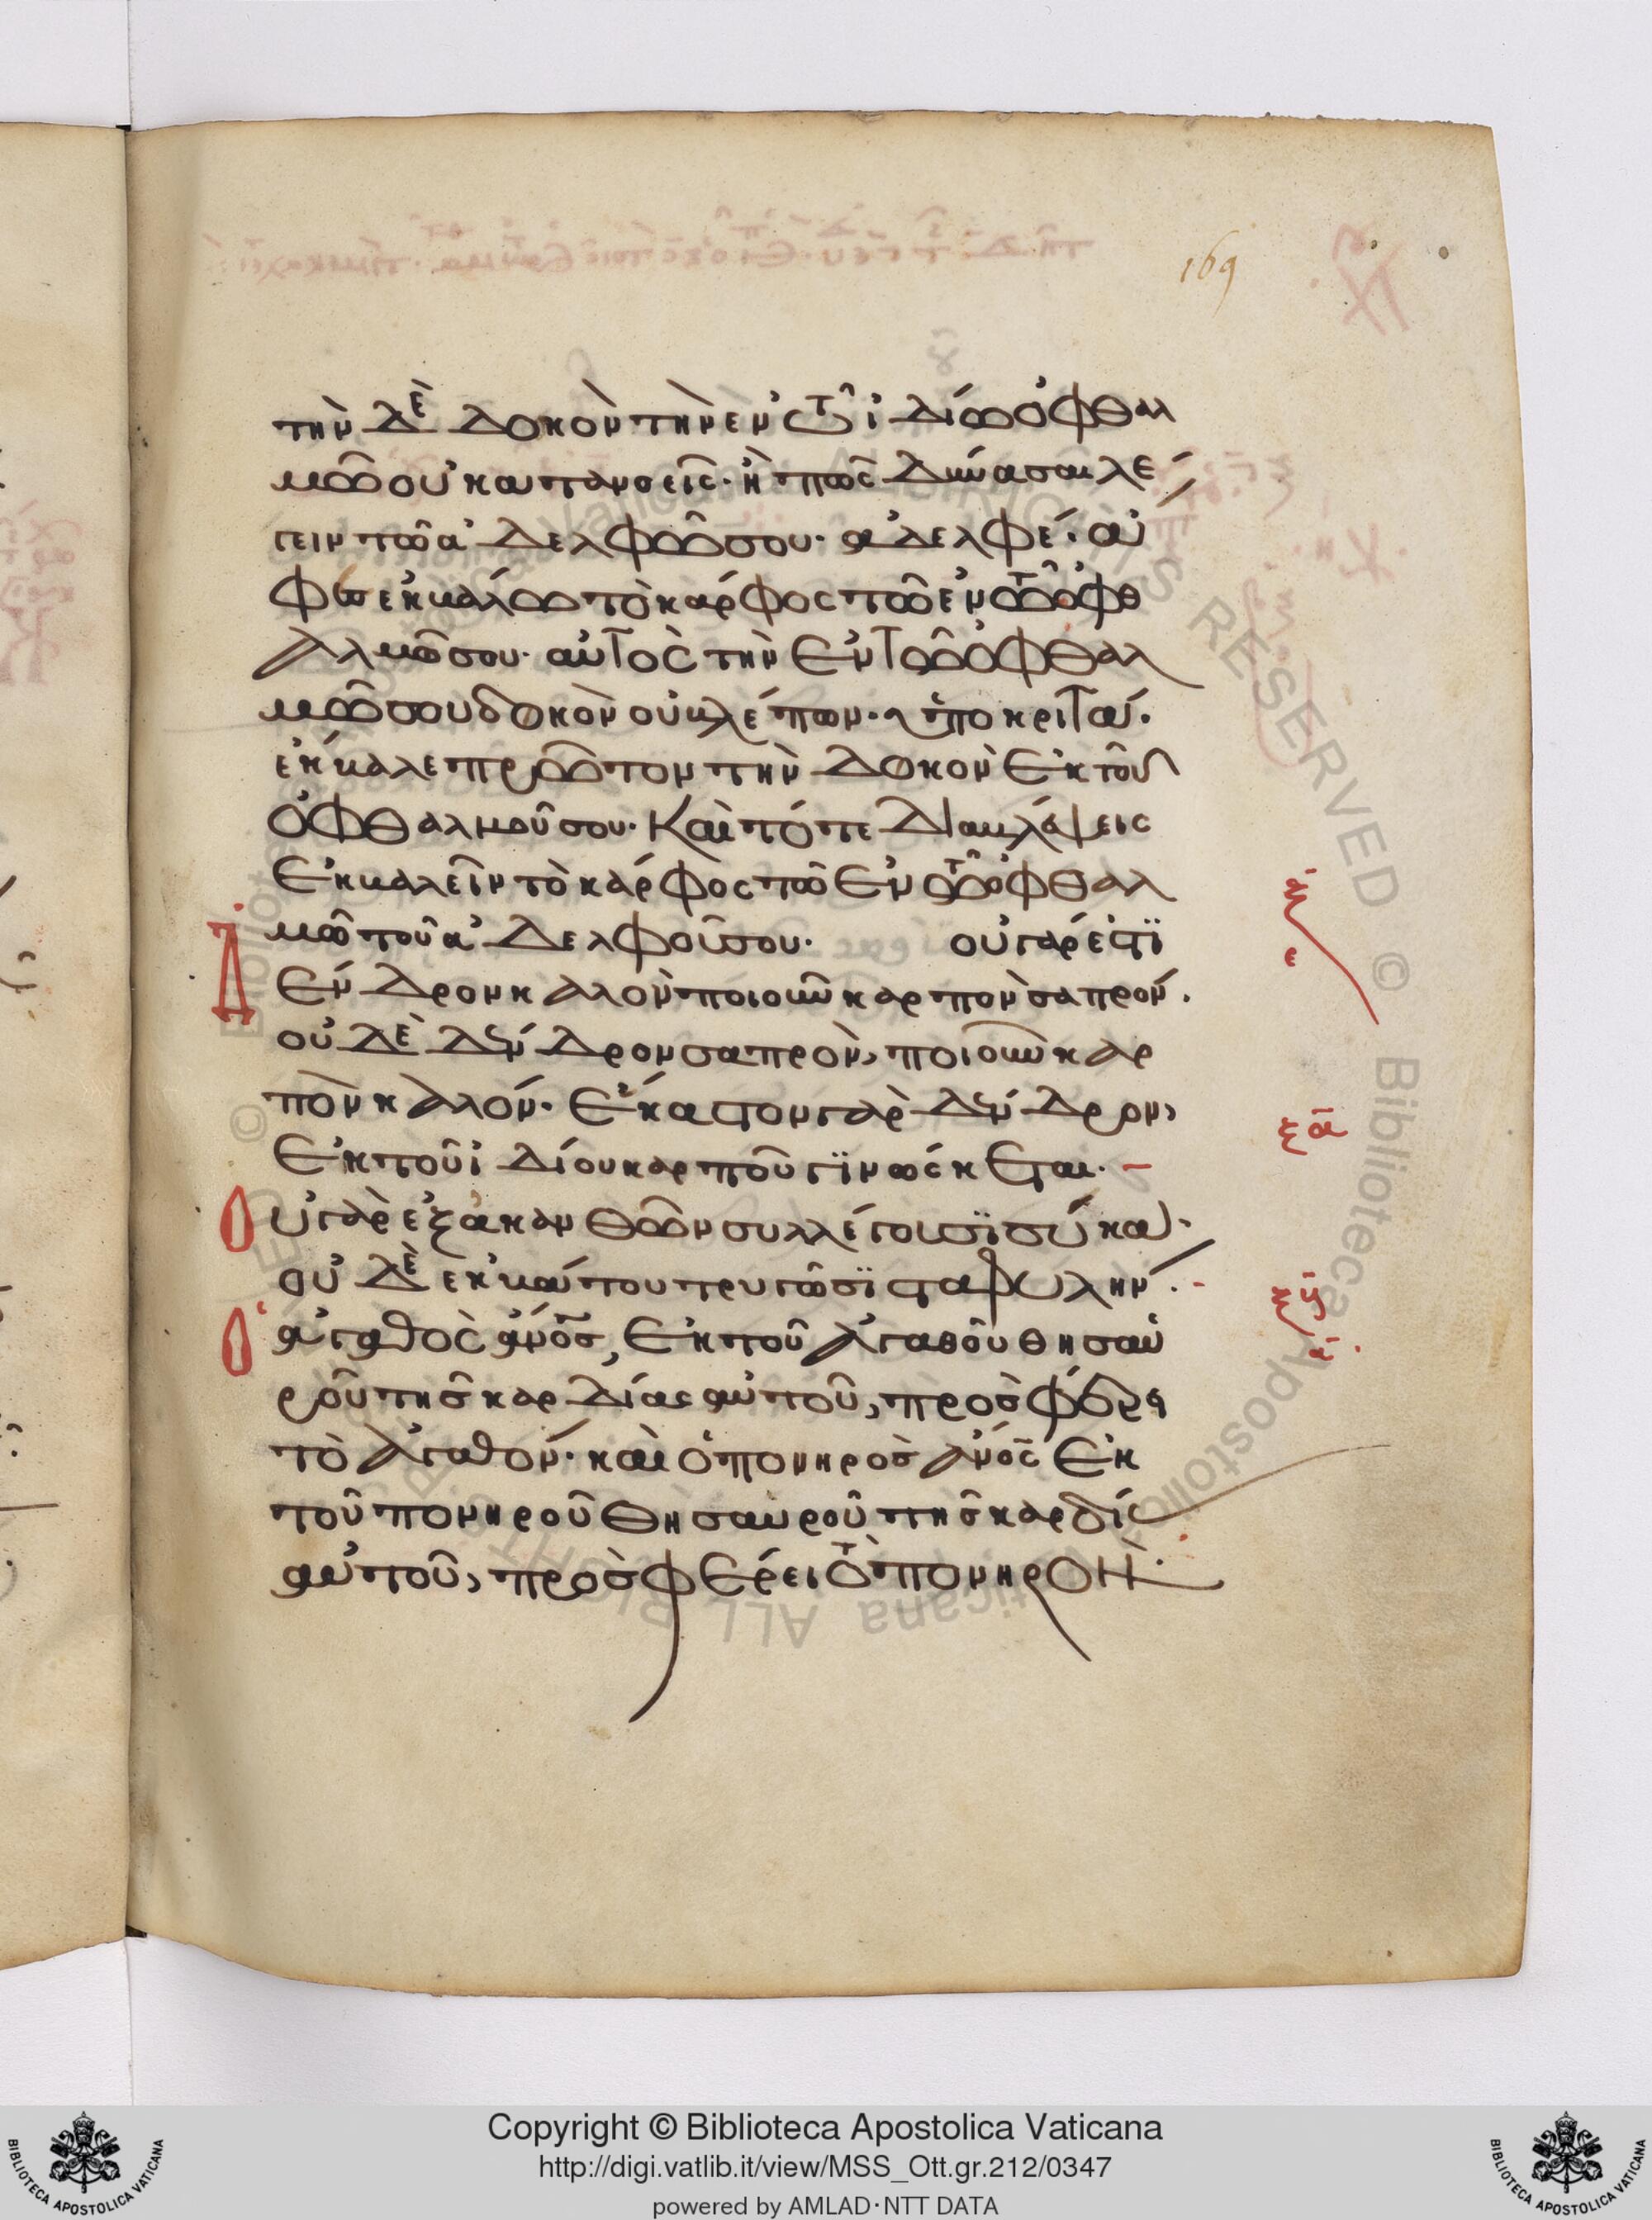 169
τὴν δὲ δοκὸν τὴν ἐν τῶ ἰδίω ὀφθαλ
μῶ οὐ κατανοεῖς· ἢ πῶς δύνασαι λέ
γειν τῶ ἀδελφῶ σου· ἀδελφέ· ἄ
φες ἐκβάλω τὸ κάρφος τὸ ἐν τῶ ὀφθ
αλμῶ σου· αὐτὸς τὴν ἐν τῶ ὀφθαλ
μῶ σου δοκὸν οὐ βλέπων· ὑποκριτά·
ἔκβαλε πρῶτον τὴν δοκὸν ἐκ τοῦ
ὀφθαλμοῦ σου· καὶ τότε διαβλέψεις
ἐκβαλεῖν τὸ κάρφος τὸ ἐν τῶ ὀφθαλ
μῶ τοῦ ἀδελφοῦ σου· οὐ γάρ ἐστϊ
δένδρον καλὸν ποιοῦν καρπὸν σαπρόν·
οὐδὲ δένδρον σαπρὸν, ποιοῦν καρ
πὸν καλόν· ἕκαστον γὰρ δένδρον,
ἐκ τοῦ ἰδίου καρποῦ γϊνώσκεται·
οὐ γὰρ ἐξ ἀκανθῶν συλλέγουσϊ σύκα·
οὐδὲ ἐκ βάτου τρυγῶσϊ σταφυλήν·
ὁ ἀγαθὸς ἄνος, ἐκ τοῦ ἀγαθοῦ θησαυ
ροῦ τῆς καρδίας αὐτοῦ, προσφέρει
τὸ ἀγαθόν· καὶ ὁ πονηρὸς ἄνος ἐκ
τοῦ πονηροῦ θησαυροῦ τῆς καρδίας
αὐτοῦ, προσφέρει τὸ πονηρόν·
ξα
Copyright © Biblioteca Apostolica Vaticana
http://digi.vatlib.it/view/MSS_Ott.gr.212/0347
powered by AMLAD·NTT DATA
BIBLIOTECA APOSTOLICA VATICANA
BIBLIOTECA APOSTOLICA VATICANA